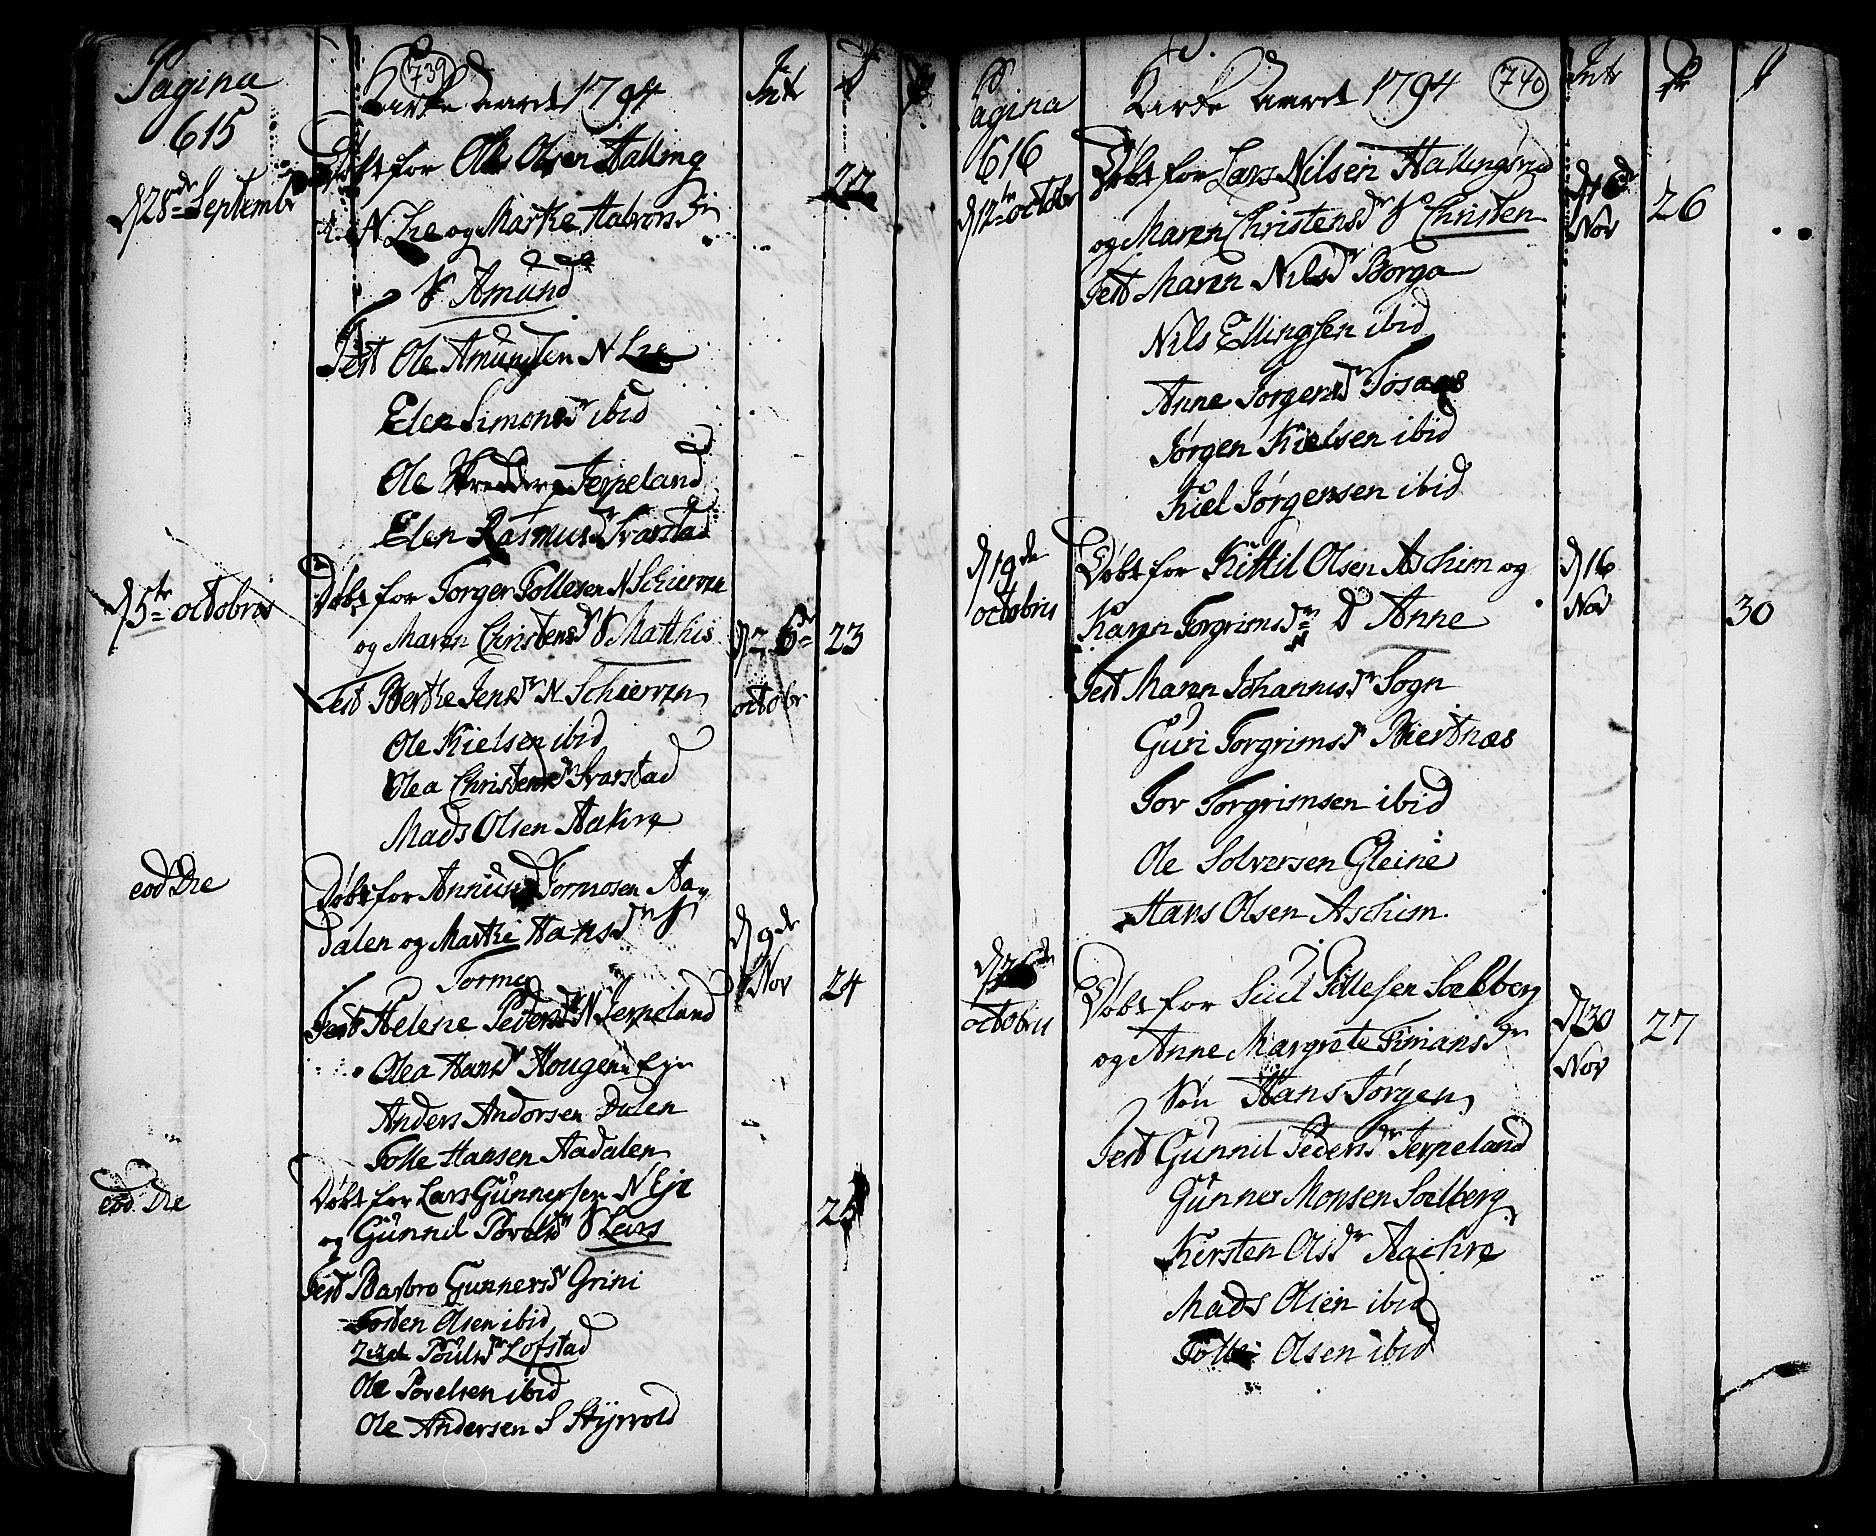 Pagina
615
739
Kirke Aaret 1794
Intr
d 28de Septembr
Døbt for Ole Olsen Halling
22
N Lie og Marthe Halvorsdr
S Amund
Test Ole Amundsen N Lie
Elen Simonsdr ibid
Ole Jerpeland
Elen Rasmusdr Tvarstad
d 5te octobris
Døbt for Torger Tollesen N Schierven
og Maren Christensdr S Matthis
d 26de
octobr
23
Test Berthe Jensdr N Schierven
Ole Kielsen ibid
Olea Christensdr Tvarstad
Mads Olsen Aakre
eod Die
Døbt for Tormosen Aa
dalen og Marthe Hansdr S
Tormo
d 9de
Nov
24
Test Helene Pedersdr N Jerpeland
Olea Hansdr Hougen eje
Anders Andersen Dalen
Tolle Hansen Aadalen
eod. Die
Døbt for Lars Gunnersen N Eje
og Gunnil Povelsdr S Lars
25
Test Barbro Gunnersdr Grini
Tosten Olsen ibid
Poulsdr Lofstad
Ole Povelsen ibid
Ole Andersen S Styrvold
Pagina
616
Kirke Aaret 1794
740
Intr
d 12te octobr
Døbt for Lars Nilsen Hallingsrud
og Maren Christensdr S Christen
d 16de
Nov
26
Test Maren Nilsdr Borga
Nils Ellingsen ibid
Anne Jørgensdr Tosaas
Jørgen Kielsen ibid
Kiel Jørgensen ibid
d 19de
octobris
Døbt for Kittil Olsen Aschim og
Karen Torgrimsdr D Anne
d 16
Nov
30
Test Maren Johannisdr Sogn
Guri Torgrimsdr Biertnæs
Tor Torgrimsen ibid
Ole Solversen Gleine
Hans Olsen Aschim
d 26de
octobris
Døbt for Siul Tollesen Soelberg
og Anne Margrete Timansdr
Søn Hans Jørgen
d 30
Nov
27
Test Gunnil Pedersdr Jerpeland
Gunner Monsen Soelberg
Kirsten Olsdr Aachre
Mads Olsen ibid
Tolle Olsen ibid